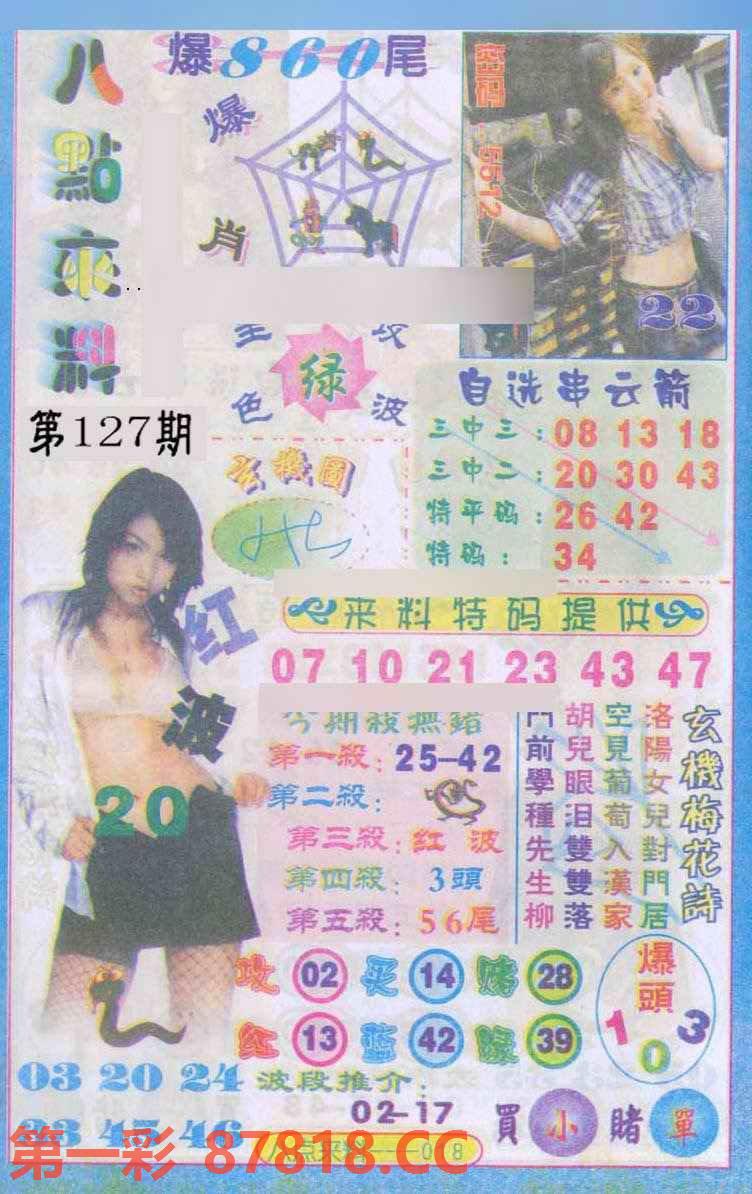 八點來料
爆860尾
爆肖
密码:5512
22
绿
色波
第127期
自选串云箭
三中三:08 13 18
三中二:20 30 43
特平码:26 42
特码:34
玄機圖
红波
20
来料特码提供
07 10 21 23 43 47
今期殺無錯
第一殺:25-42
第二殺:
第三殺:红波
第四殺:3頭
第五殺:56尾
玄機梅花詩
洛陽女兒對門居
空見葡萄入漢家
胡兒眼泪雙雙落
門前學種先生柳
攻 02 买 14 赌 28
红 13 蓝 42 绿 39
爆頭
1 0 3
03 20 24
波段推介:
02-17
買小賭單
第一彩 87818.CC